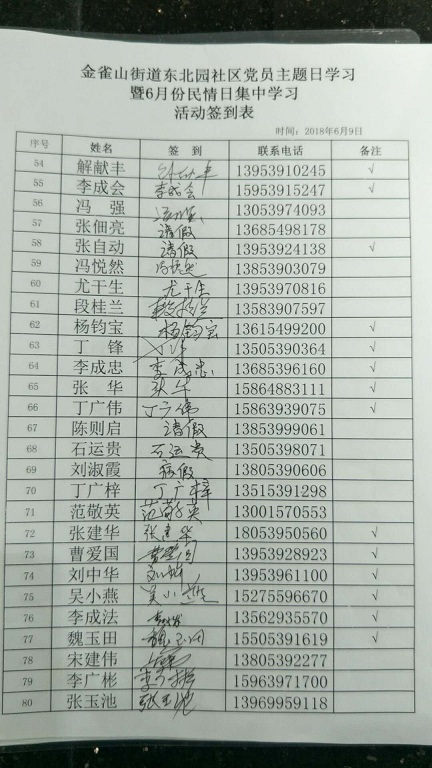 金雀山街道东北园社区党员主题日学习
暨6月份民情日集中学习
活动签到表
时间：2018年6月9日
序号 姓名 签 到 联系电话 备注
54 解献丰 13953910245 √
55 李成会 李成会 15953915247 √
56 冯 强 冯强 13053974093
57 张佃亮 请假 13685498178
58 张自动 请假 13953924138 √
59 冯悦然 冯悦然 13853903079
60 尤干生 尤干生 13953970816
61 段桂兰 段桂兰 13583907597
62 杨钧宝 杨钧宝 13615499200 √
63 丁 锋 丁锋 13505390364 √
64 李成忠 李成忠 13685396160 √
65 张 华 张华 15864883111 √
66 丁广伟 丁广伟 15863939075 √
67 陈则启 请假 13853999061
68 石运贵 石运贵 13505398071
69 刘淑霞 病假 13805390606
70 丁广梓 丁广梓 13515391298
71 范敬英 范敬英 13001570553
72 张建华 张建华 18053950560 √
73 曹爱国 曹爱国 13953928923 √
74 刘中华 13953961100 √
75 吴小燕 吴小燕 15275596670 √
76 李成法 13562935570 √
77 魏玉田 魏玉田 15505391619 √
78 宋建伟 13805392277
79 李广彬 李广彬 15963971700
80 张玉池 张玉池 13969959118